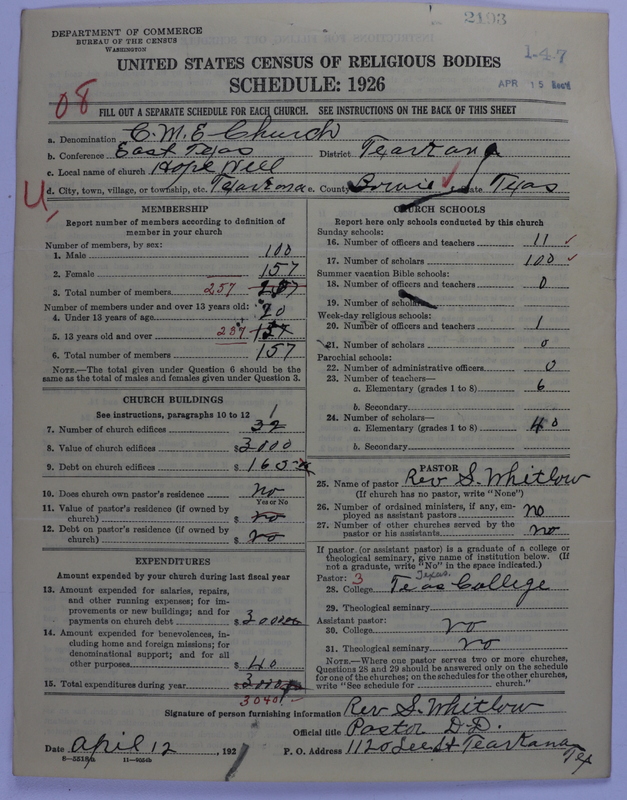 2193
DEPARTMENT OF COMMERCE
BUREAU OF THE CENSUS
WASHINGTON
1-4-7
APR 15 Rec'd
UNITED STATES CENSUS OF RELIGIOUS BODIES
SCHEDULE: 1926
08
FILL OUT A SEPARATE SCHEDULE FOR EACH CHURCH. SEE INSTRUCTIONS ON THE BACK OF THIS SHEET
a. Denomination C. M. E Church
b. Conference East Texas District Texarkana
c. Local name of church Hope Well
d. City, town, village, or township, etc. Texarkana e. County Bowie State Texas
U,
MEMBERSHIP
Report number of members according to definition of
member in your church
Number of members, by sex:
1. Male 100
2. Female 157
3. Total number of members 257 257
Number of members under and over 13 years old:
4. Under 13 years of age 20
5. 13 years old and over 237
6. Total number of members 157
NOTE.—The total given under Question 6 should be the
same as the total of males and females given under Question 3.
CHURCH BUILDINGS
See instructions, paragraphs 10 to 12
7. Number of church edifices 1
8. Value of church edifices $3000
9. Debt on church edifices $
10. Does church own pastor's residence no
Yes or No
11. Value of pastor's residence (if owned by
church) $ no
12. Debt on pastor's residence (if owned by
church) $ no
EXPENDITURES
Amount expended by your church during last fiscal year
13. Amount expended for salaries, repairs,
and other running expenses; for im-
provements or new buildings; and for
payments on church debt $
14. Amount expended for benevolences, in-
cluding home and foreign missions; for
denominational support; and for all
other purposes $40
15. Total expenditures during year $
3040
CHURCH SCHOOLS
Report here only schools conducted by this church
Sunday schools:
16. Number of officers and teachers 11
17. Number of scholars 100
Summer vacation Bible schools:
18. Number of officers and teachers 0
19. Number of scholars
Week-day religious schools:
20. Number of officers and teachers 1
21. Number of scholars 0
Parochial schools:
22. Number of administrative officers 0
23. Number of teachers—
a. Elementary (grades 1 to 8) 6
b. Secondary
24. Number of scholars—
a. Elementary (grades 1 to 8) 40
b. Secondary
PASTOR
25. Name of pastor Rev S. Whitlow
(If church has no pastor, write "None")
26. Number of ordained ministers, if any, em-
ployed as assistant pastors no
27. Number of other churches served by the
pastor or his assistants no
If pastor (or assistant pastor) is a graduate of a college or
theological seminary, give name of institution below. (If
not a graduate, write "No" in the space indicated.)
Pastor: 3 Texas
28. College Texas College
29. Theological seminary
Assistant pastor:
30. College no
31. Theological seminary no
NOTE.—Where one pastor serves two or more churches,
Questions 28 and 29 should be answered only on the schedule
for one of the churches; on the schedules for the other churches,
write "See schedule for church."
Signature of person furnishing information Rev S. Whitlow
Official title Pastor D.D.
Date April 12, 192 P. O. Address 1120 Lee St Texarkana
Tex
8—5518a 11—9554b